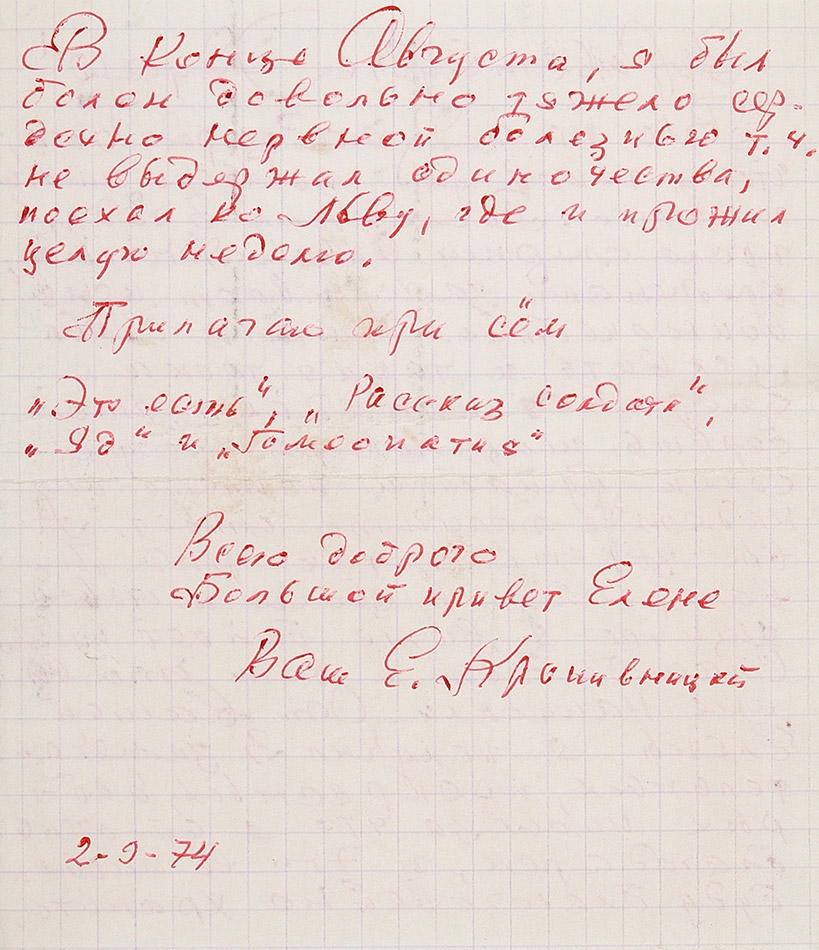 В конце Августа, я был
болен довольно тяжело сер-
дечно нервной болезнью т.ч.
не выдержал одиночества,
поехал ко Льву, где и прожил
целую неделю.
Прилагаю при сём
„Это есть", „Рассказ солдата",
„Яд" и „Гомеопатия"
Всего доброго
Большой привет Елене
Ваш Е. Кропивницкий
2-9-74